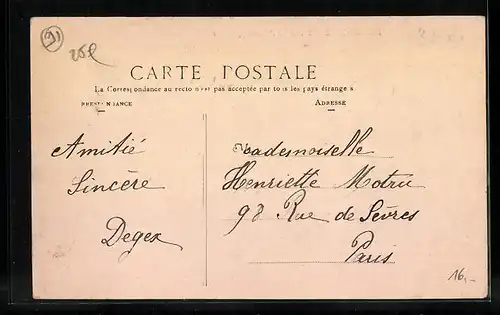 91
25e
CARTE POSTALE
La Correspondance au recto n'est pas acceptée par tous les pays étrangers
PRESPONDANCE
ADRESSE
Amitié
Sincère
Degex
Mademoiselle
Henriette Motru
98 Rue de Sèvres
Paris
16,-